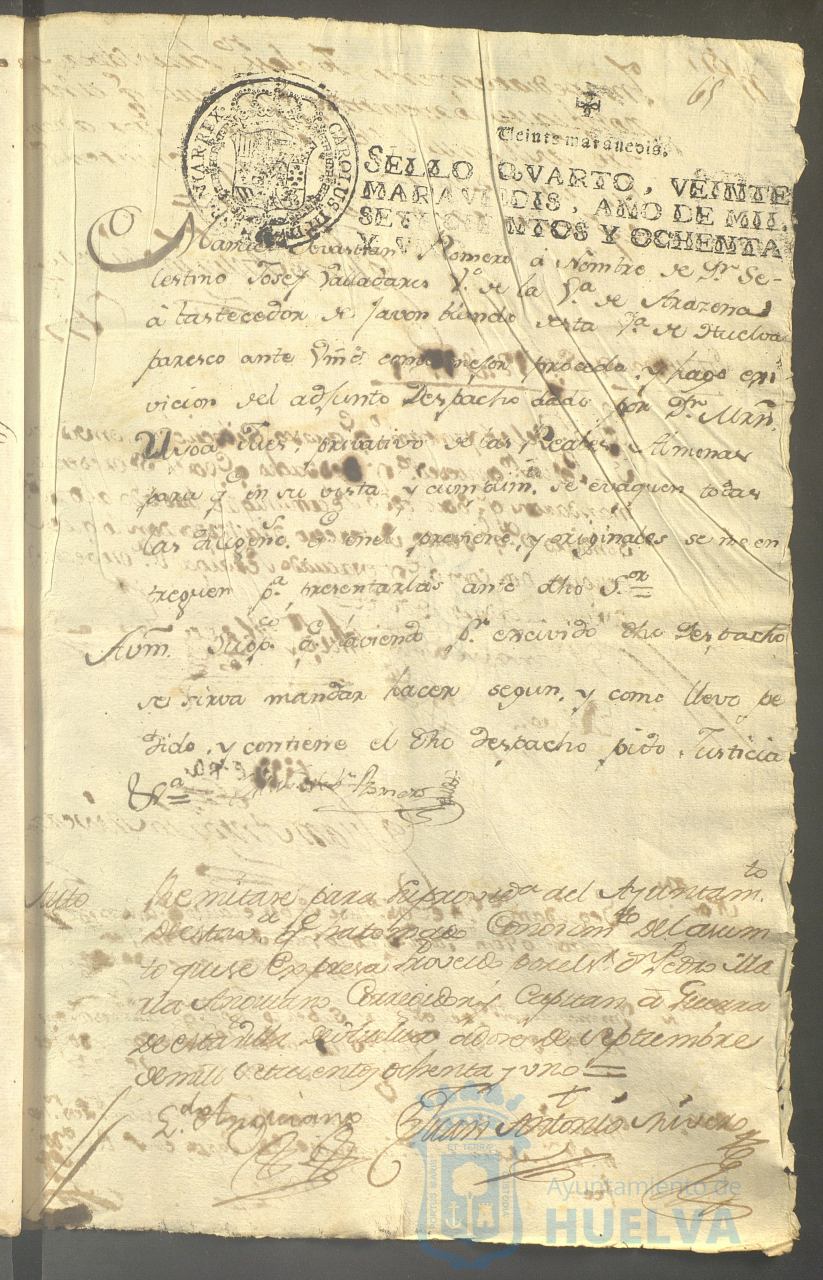 65
Veinte maravedis.
SELLO QVARTO, VEINTE
MARAVEDIS, AÑO DE MIL
SETECIENTOS Y OCHENTA
Y V
CAROLUS III D.
HISPANIAR REX
Manuel Sevastian Romero a Nombre de Dn. Se-
lestino Josef Valladares Vo. de la Va. de Arazena
abastecedor de Javon blando desta Va. de Huelva
paresco ante Vmd. como mejor proceda, y hago exi
vicion del adjunto Despacho dado por Dn. Mrn.
Ulloa Jues privativo de las Reales Almonas
para q. en su vista y cumplimto. se evaquen todas
las diligens. q. en el previene, y originales se me en
treguen pa. presentarlas ante dho Sor. =
A Vm. Suppco. q. haviendo pr. excivido dho Despacho
se sirva mandar hacer segun, y como llevo pe
dido, y contiene el dho despacho pido Justicia
&a. = Romero
Auto Remitase para su provida. del Ayuntamto.
de esta va. q. ha tomado Conosimto. del asum
to que se Expresa Proveido por el Sr. Dn. Pedro Ma
ria Anguiano Corregidor y Capitan a Guerra
de esta villa de Huelva a dose de septiembre
de mil setecientos ochenta y uno =
Ldo. Anguiano Juan Antonio Rivero
Ayuntamiento de
HUELVA